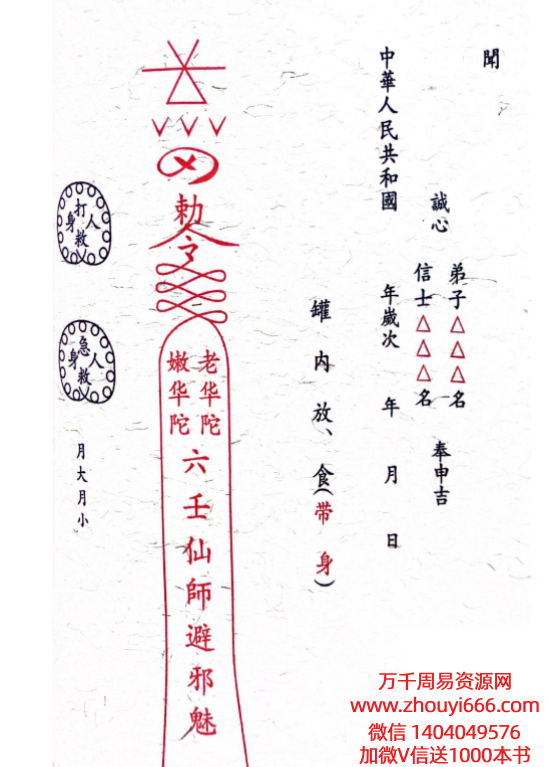 聞
誠心
弟子△△△名
信士△△△名
奉申吉
中華人民共和國
年歲次
年
月
日
罐内放、食(带身)
勅令
老华陀
嫩华陀
六壬仙師避邪魅
打人救身
急人救身
月大月小
万千周易资源网
www.zhouyi666.com
微信 1404049576
加微V信送1000本书